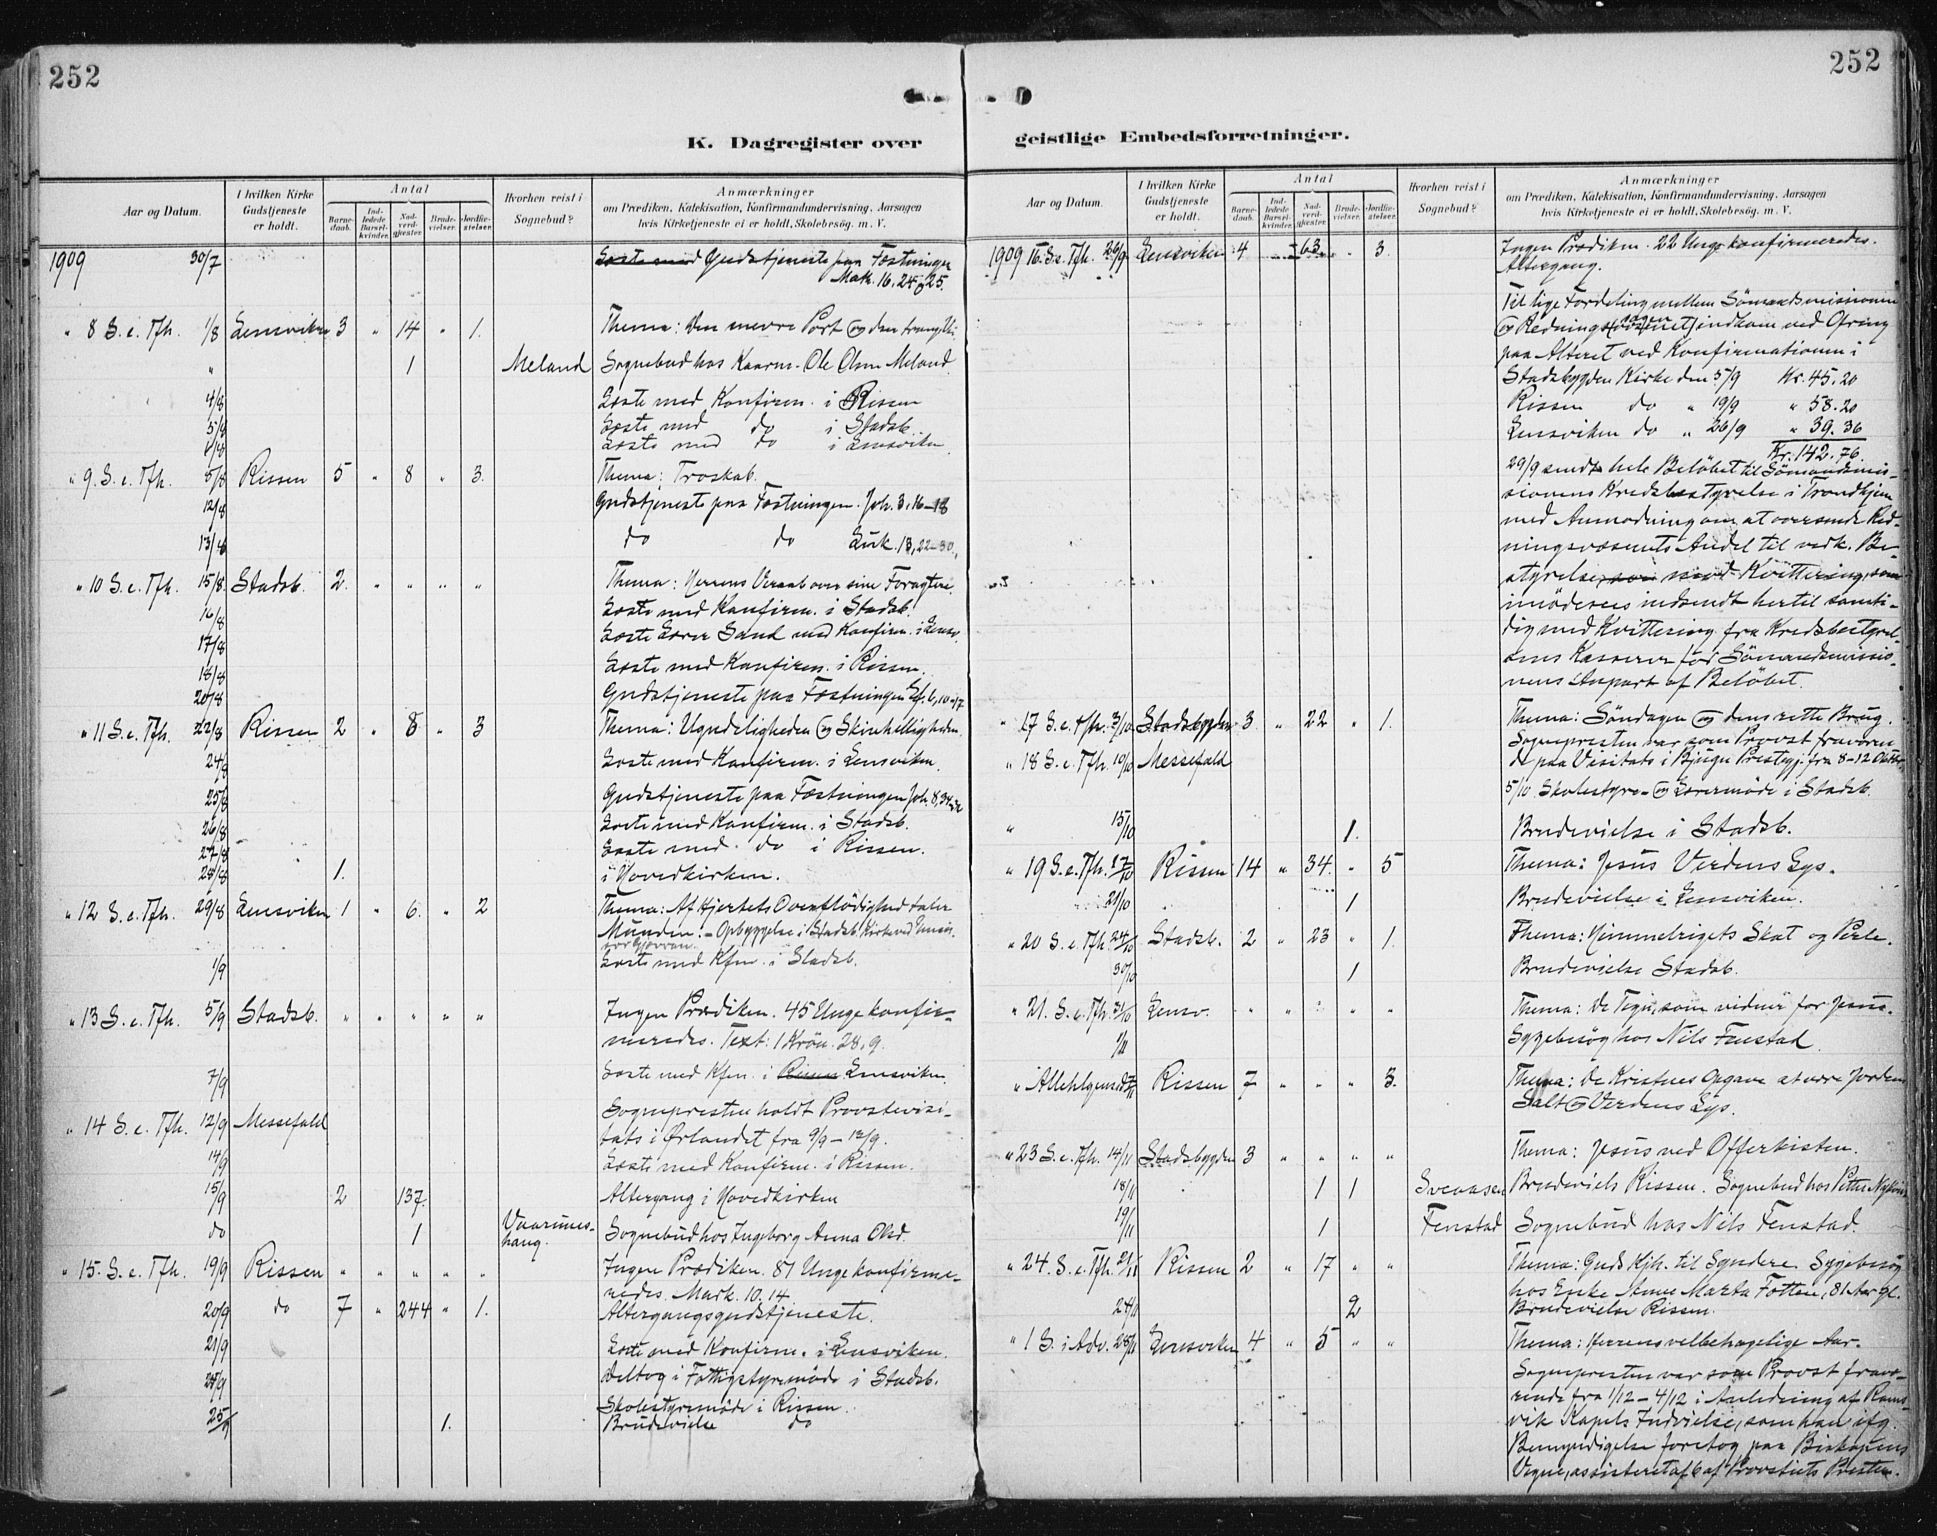 252
K. Dagregister over
Aar og Datum.
I hvilken Kirke Gudstjeneste er holdt.
Antal
Barnedaab.
Indledede Barselkvinder.
Nadverdgjester.
Brudevielser.
Jordfæstelser.
Hvorhen reist i Sognebud?
Anmærkninger
om Prædiken, Katekisation, Konfirmandundervisning, Aarsagen
hvis Kirketjeneste ei er holdt, Skolebesøg. m. V.
1909 30/7 Læste med Gudstjeneste paa Fæstningen
Mark. 16, 24 25.
" 8 S. e. Tfh. 1/8 Lensviken 3 " 14 " 1. Thema: Den snevre Port og den trange Vei
" 1 Meland Sognebud hos Kaarm. Ole Olsen Meland
4/8 Læste med Konfirm. i Rissen
5/8 Læste med do i Stadsb.
6/8 Læste med do i Lensviken
" 9 S. e. Tfh. 8/8 Rissen 5 " 8 " 3. Thema: Troskab.
12/8 Gudstjeneste paa Fæstningen. Joh. 3, 16-18
13/8 do do Luk. 13, 22-30.
" 10 S. e. Tfh. 15/8 Stadsb. 2. " " " " Thema: Herrens Veraab over sine Foragtere.
16/8 Læste med Konfirm. i Stadsb.
17/8 Læste Lærer Sand med Konfirm. i Lensv.
18/8 Læste med Konfirm. i Rissen.
20/8 Gudstjeneste paa Fæstningen Ef. 6, 10-17
" 11 S. e. Tfh. 22/8 Rissen 2 " 8 " 3 Thema: Ugudeligheden og Skinhelligheden.
24/8 Læste med Konfirm. i Lensviken.
25/8 Gudstjeneste paa Fæstningen Joh. 8, 31-
26/8 Læste med Konfirm. i Stadsb.
27/8 Læste med do i Rissen.
28/8 1. i Hovedkirken.
" 12 S. e. Tfh. 29/8 Lensviken 1 " 6. " 2 Thema: Af Hjertets Overflødighed taler
Munden. - Opbyggelse i Stadsb. Kirke ved
1/9 Læste med Kfm. i Stadsb.
" 13 S. e. Tfh. 5/9 Stadsb. " " " " " Ingen Prædiken. 45 Unge konfir-
meredes. Text: 1 Krøn. 28, 9.
7/9 Læste med Kfm. i Rissen Lensviken.
" 14 S. e. Tfh. 12/9 Messefald Sognepresten holdt Provstevisi-
tats i Ørlandet fra 9/9 - 12/9.
14/9 Læste med Konfirm. i Rissen.
15/9 2 137. Altergang i Hovedkirken
do 1 Vaarnes-
haug. Sognebud hos Ingeborg Anna Olsd.
" 15. S. e. Tfh. 19/9 Rissen " " " " " Ingen Prædiken. 87 Unge konfirme-
redes. Mark. 10. 14.
20/9 do 7 " 244 " 1. Altergangsgudstjeneste.
21/9 Læste med Konfirm. i Lensviken.
24/9 Deltog i Fattigstyremøde i Stadsb.
Skolestyremøde i Rissen.
25/9 1. Brudevielse do
252
geistlige Embedsforretninger.
Aar og Datum.
I hvilken Kirke Gudstjeneste er holdt.
Antal
Barnedaab.
Indledede Barselkvinder.
Nadverdgjester.
Brudevielser.
Jordfæstelser.
Hvorhen reist i Sognebud?
Anmærkninger
om Prædiken, Katekisation, Konfirmandundervisning, Aarsagen
hvis Kirketjeneste ei er holdt, Skolebesøg. m. V.
1909 16. S. e. Tfh. 26/9 Lensviken 4 163 " 3. Ingen Prædiken. 22 Unge konfirmeredes.
Altergang.
Til lige Fordeling mellem Sømandsmissionen
og Redningssagen indkom ved Ofring
paa Alteret ved Konfirmationen i
Stadsbygden Kirke den 5/9 Kr. 45.20
Rissen do " 19/9 " 58.20
Lensviken do " 26/9 " 39.36
Kr. 142.76.
29/9 sendt hele Beløbet til Sømandsmis-
sionens Kredsbestyrelse i Trondhjem
med Anmodning om at oversende Red-
ningsvæsenets Andel til vedk. Be-
styrelse, som mod Kvittering, som
imødesees indsendt hertil samti-
dig med Kvittering fra Kredsbestyrel-
sens Kasserer for Sømandsmissio-
nens Anpart af Beløbet.
" 17 S. e. Tfh. 3/10 Stadsbygden 3 " 22 " 1. Thema: Søndagen og dens rette Brug.
" 18 S. e. Tfh. 10/10 Messefald Sognepresten var som Provst fraværen
de paa Visitats i Bjugn Prestegj. fra 8-12 Oktbr.
5/10 Skolestyre- og Lærermøde i Stadsb.
" 15/10 1. Brudevielse i Stadsb.
" 19 S. e. Tfh. 17/10 Rissen 14 " 34. " 5 Thema: Jesus Verdens Lys.
21/10 1 Brudevielse i Lensviken.
" 20 S. e. Tfh 24/10 Stadsb. 2 " 23 " 1. Thema: Himmelrigets Skat og Perle.
30/10 1 Brudevielse Stadsb.
" 21. S. e. Tfh. 31/10 Lensv. " " " " " Thema: De Tegn, som vidner for Jesus.
1/11 Sygebesøg hos Nils Fenstad.
" Allehelgensd. 7/11 Rissen 7 " " " 3. Thema: De Kristnes Opgave at være Jordens
Salt og Verdens Lys.
" 23 S. e. Tfh. 14/11 Stadsbygden 3 " " " " Thema: Jesus ved Offerkisten.
18/11 1 1 Svenasen Brudeviels Rissen. Sognebud hos Petter
19/11 1 Fenstad Sognebud hos Nils Fenstad.
" 24. S. e. Tfh. 21/11 Rissen 2 " 17 " " Thema: Guds Kjh. til Syndere. Sygebesøg
hos Enke Anne Marta Fotten, 81 Aar gl.
24/11 2 Brudevielse Rissen.
" 1 S. i Adv. 28/11 Lensviken 4 " 5 " " Thema: Herrens velbehagelige Aar.
Sognepresten var som Provst fravæ-
rende fra 1/12 - 4/12 i Anledning af Rams-
vik Kapels Indvielse, som han ifg.
Bemyndigelse foretog paa Biskopens
Vegne, assisteret af 6 af Provstiets Prester.